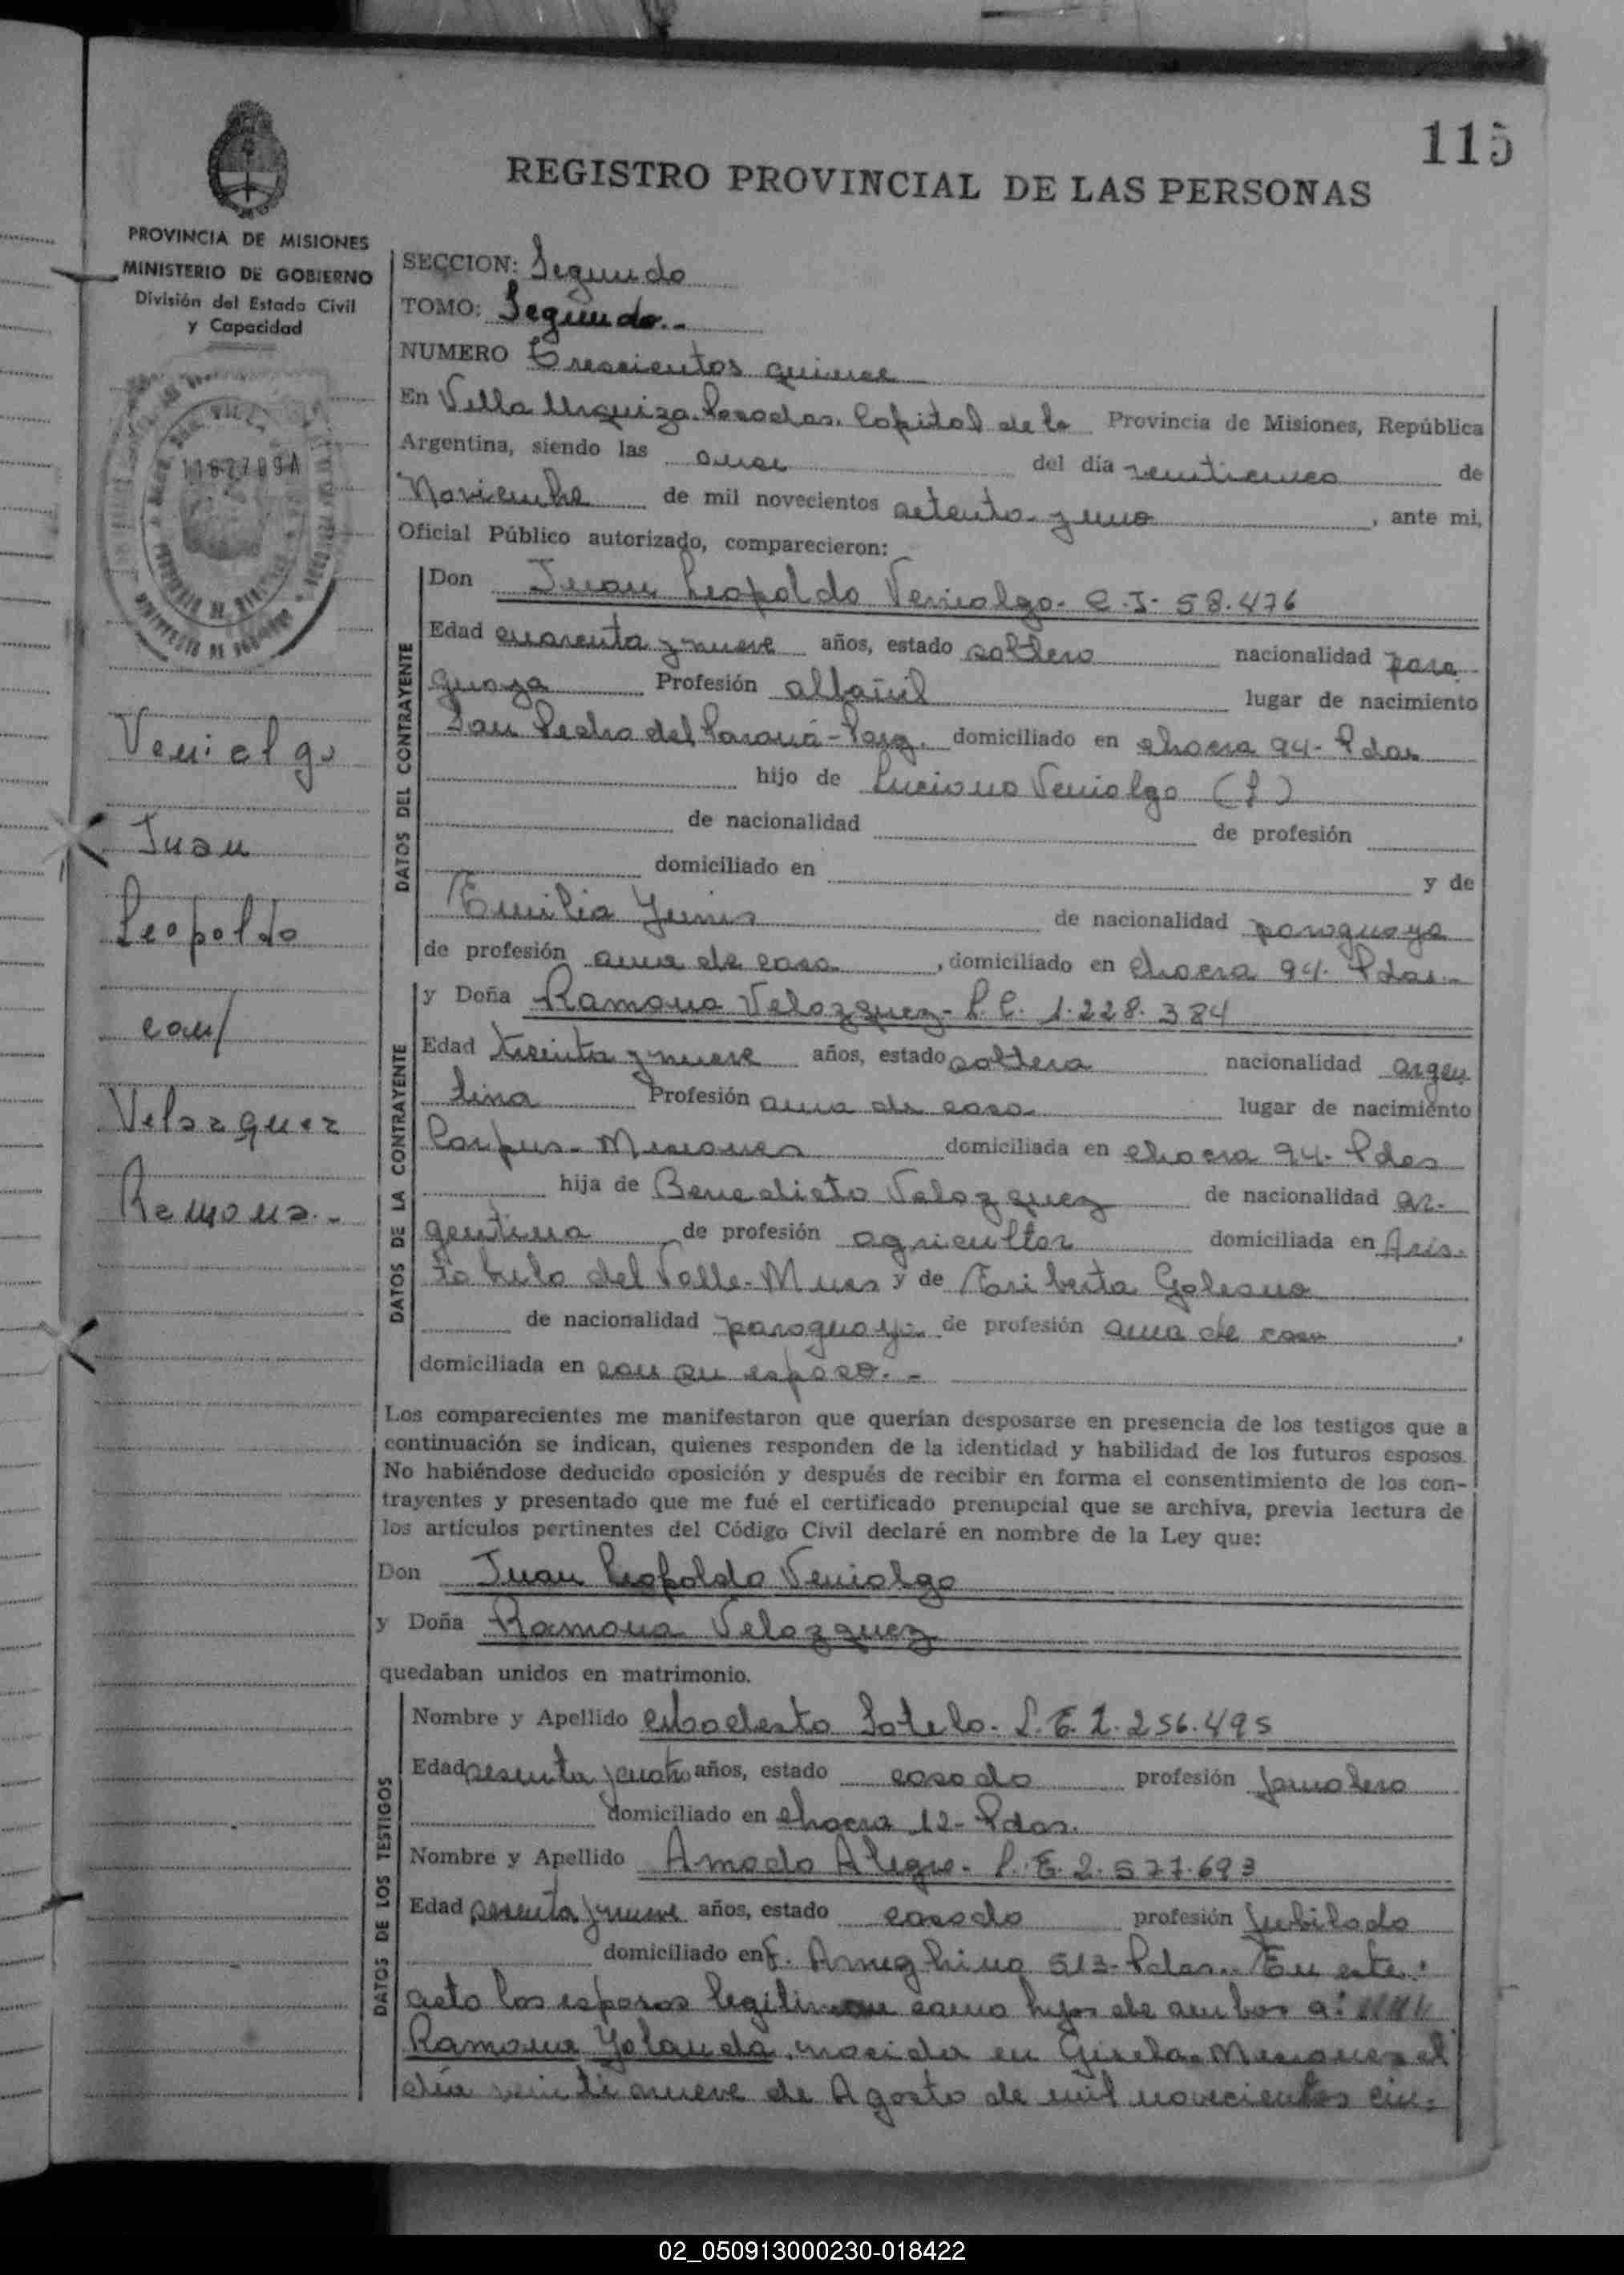 115
REGISTRO PROVINCIAL DE LAS PERSONAS
PROVINCIA DE MISIONES
MINISTERIO DE GOBIERNO
División del Estado Civil
y Capacidad
1162709A
Veniolgo
Juan
Leopoldo
con/
Velazquez
Ramona.-
SECCION: Segundo
TOMO: Segundo.-
NUMERO Trescientos quince
En Villa Urquiza. Posadas. Capital de la Provincia de Misiones, República
Argentina, siendo las once del día veinticinco de
Noviembre de mil novecientos setenta y uno, ante mi,
Oficial Público autorizado, comparecieron:
DATOS DEL CONTRAYENTE
Don Juan Leopoldo Veniolgo. C.I. 58.476
Edad cuarenta y nueve años, estado soltero nacionalidad para
guaya Profesión albañil lugar de nacimiento
San Pedro del Paraná - Parg. domiciliado en chacra 94- Pdas
hijo de Luciano Veniolgo (f)
de nacionalidad de profesión
domiciliado en y de
Emilia de nacionalidad paraguaya
de profesión ama de casa, domiciliado en chacra 94. Pdas.-
DATOS DE LA CONTRAYENTE
y Doña Ramona Velazquez- L.C. 1.228.384
Edad treinta y nueve años, estado soltera nacionalidad argen
tina Profesión ama de casa lugar de nacimiento
Corpus- Misiones domiciliada en chacra 94- Pdas
hija de Benedicto Velazquez de nacionalidad ar-
gentina de profesión agricultor domiciliada en Aris-
tóbulo del Valle- Mnes y de Eriberta Galeano
de nacionalidad paraguaya de profesión ama de casa,
domiciliada en con su esposo.-
Los comparecientes me manifestaron que querían desposarse en presencia de los testigos que a
continuación se indican, quienes responden de la identidad y habilidad de los futuros esposos.
No habiéndose deducido oposición y después de recibir en forma el consentimiento de los con-
trayentes y presentado que me fué el certificado prenupcial que se archiva, previa lectura de
los artículos pertinentes del Código Civil declaré en nombre de la Ley que:
Don Juan Leopoldo Veniolgo
y Doña Ramona Velazquez
quedaban unidos en matrimonio.
DATOS DE LOS TESTIGOS
Nombre y Apellido Modesto Sotelo. L.E. 2.256.495
Edad sesenta y cuatro años, estado casado profesión jornalero
domiciliado en chacra 12- Pdas.
Nombre y Apellido Amado Alegre. L.E. 2.577.693
Edad sesenta y nueve años, estado casado profesión jubilado
domiciliado en F. Ameghino 513- Pdas.. En este
acto los esposos legitiman como hijos de ambos a:
Ramona Yolanda, nacida en Gisela- Misiones el
día veintinueve de Agosto de mil novecientos cin-
02_050913000230-018422